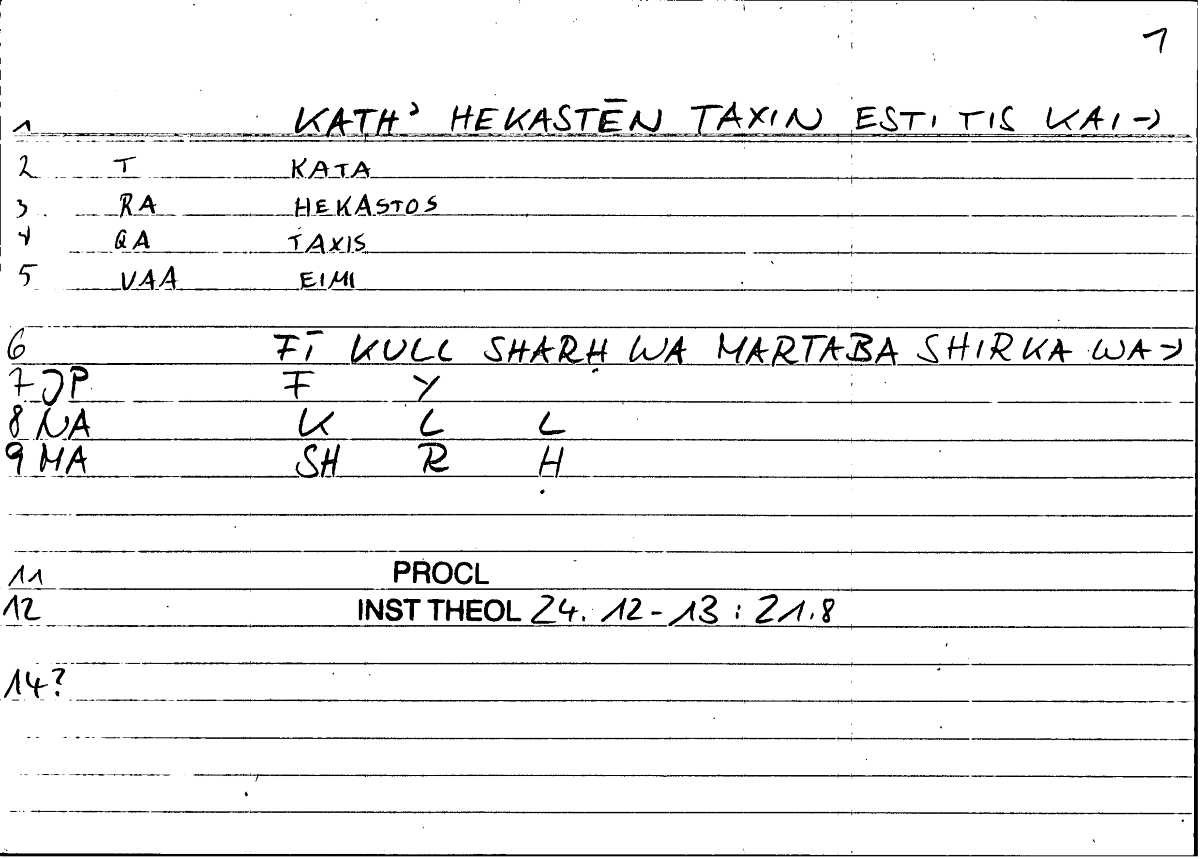 1
1 KATH' HEKASTĒN TAXIN ESTI TIS KAI→
2 T KATA
3 RA HEKASTOS
4 QA TAXIS
5 VAA EIMI
6 FĪ KULL SHARḤ WA MARTABA SHIRKA WA→
7 JP F Y
8 NA K L L
9 MA SH R Ḥ
11 PROCL
12 INST THEOL 24. 12-13 : 21.8
14?